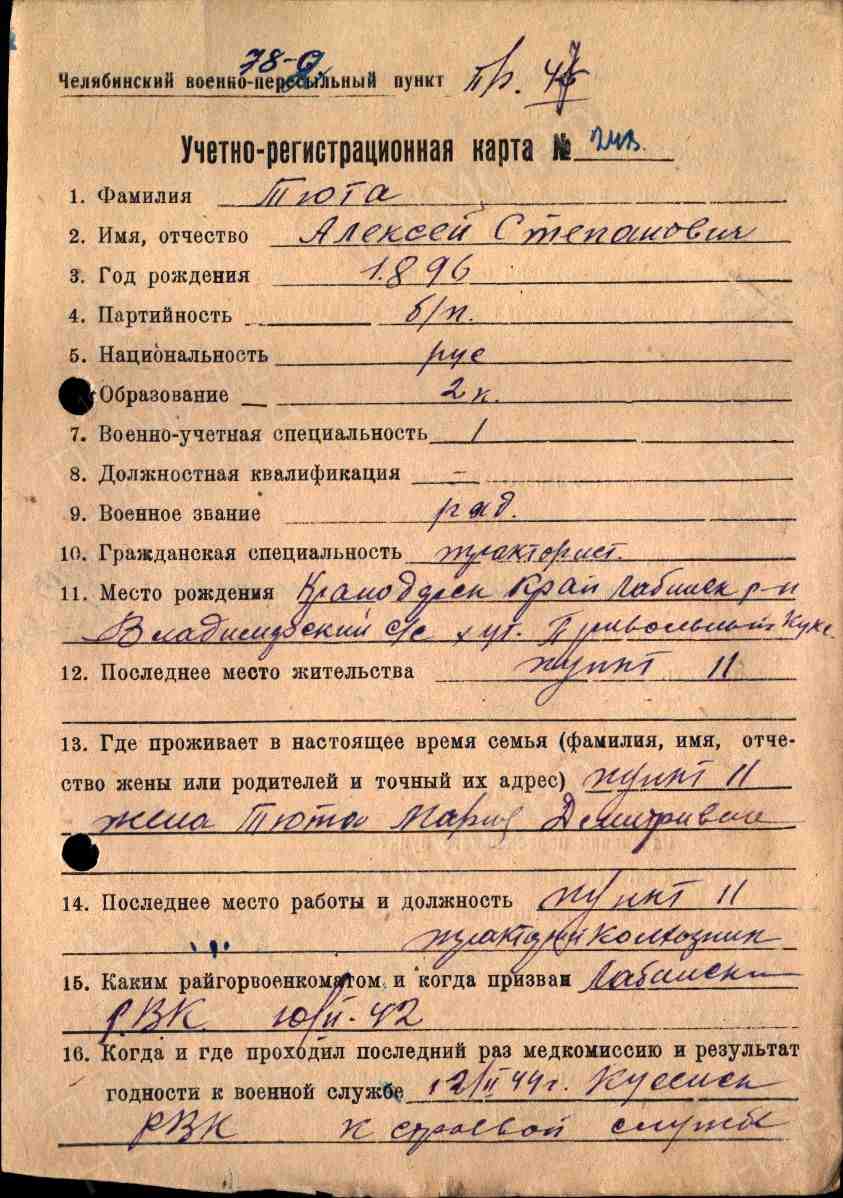 78-
Челябинский военно-пересыльный пункт пр. 47
Учетно-регистрационная карта №
1. Фамилия Тюта
2. Имя, отчество Алексей Степанович
3. Год рождения 1896
4. Партийность б/п.
5. Национальность рус
Образование 2 к.
7. Военно-учетная специальность 1
8. Должностная квалификация –
9. Военное звание ряд.
10. Гражданская специальность тракторист.
11. Место рождения Краснодарск край Лабинск р-н
Владимирский с/с хут. Привольный
12. Последнее место жительства пункт 11
13. Где проживает в настоящее время семья (фамилия, имя, отче-
ство жены или родителей и точный их адрес) пункт 11
жена Тюта Мария Дмитривна
14. Последнее место работы и должность пункт 11
колхозник
15. Каким райгорвоенкоматом и когда призван Лабински
РВК 10/II-42
16. Когда и где проходил последний раз медкомиссию и результат
годности к военной службе 12/II 44 г. Кусинск
РВК к строевой службе